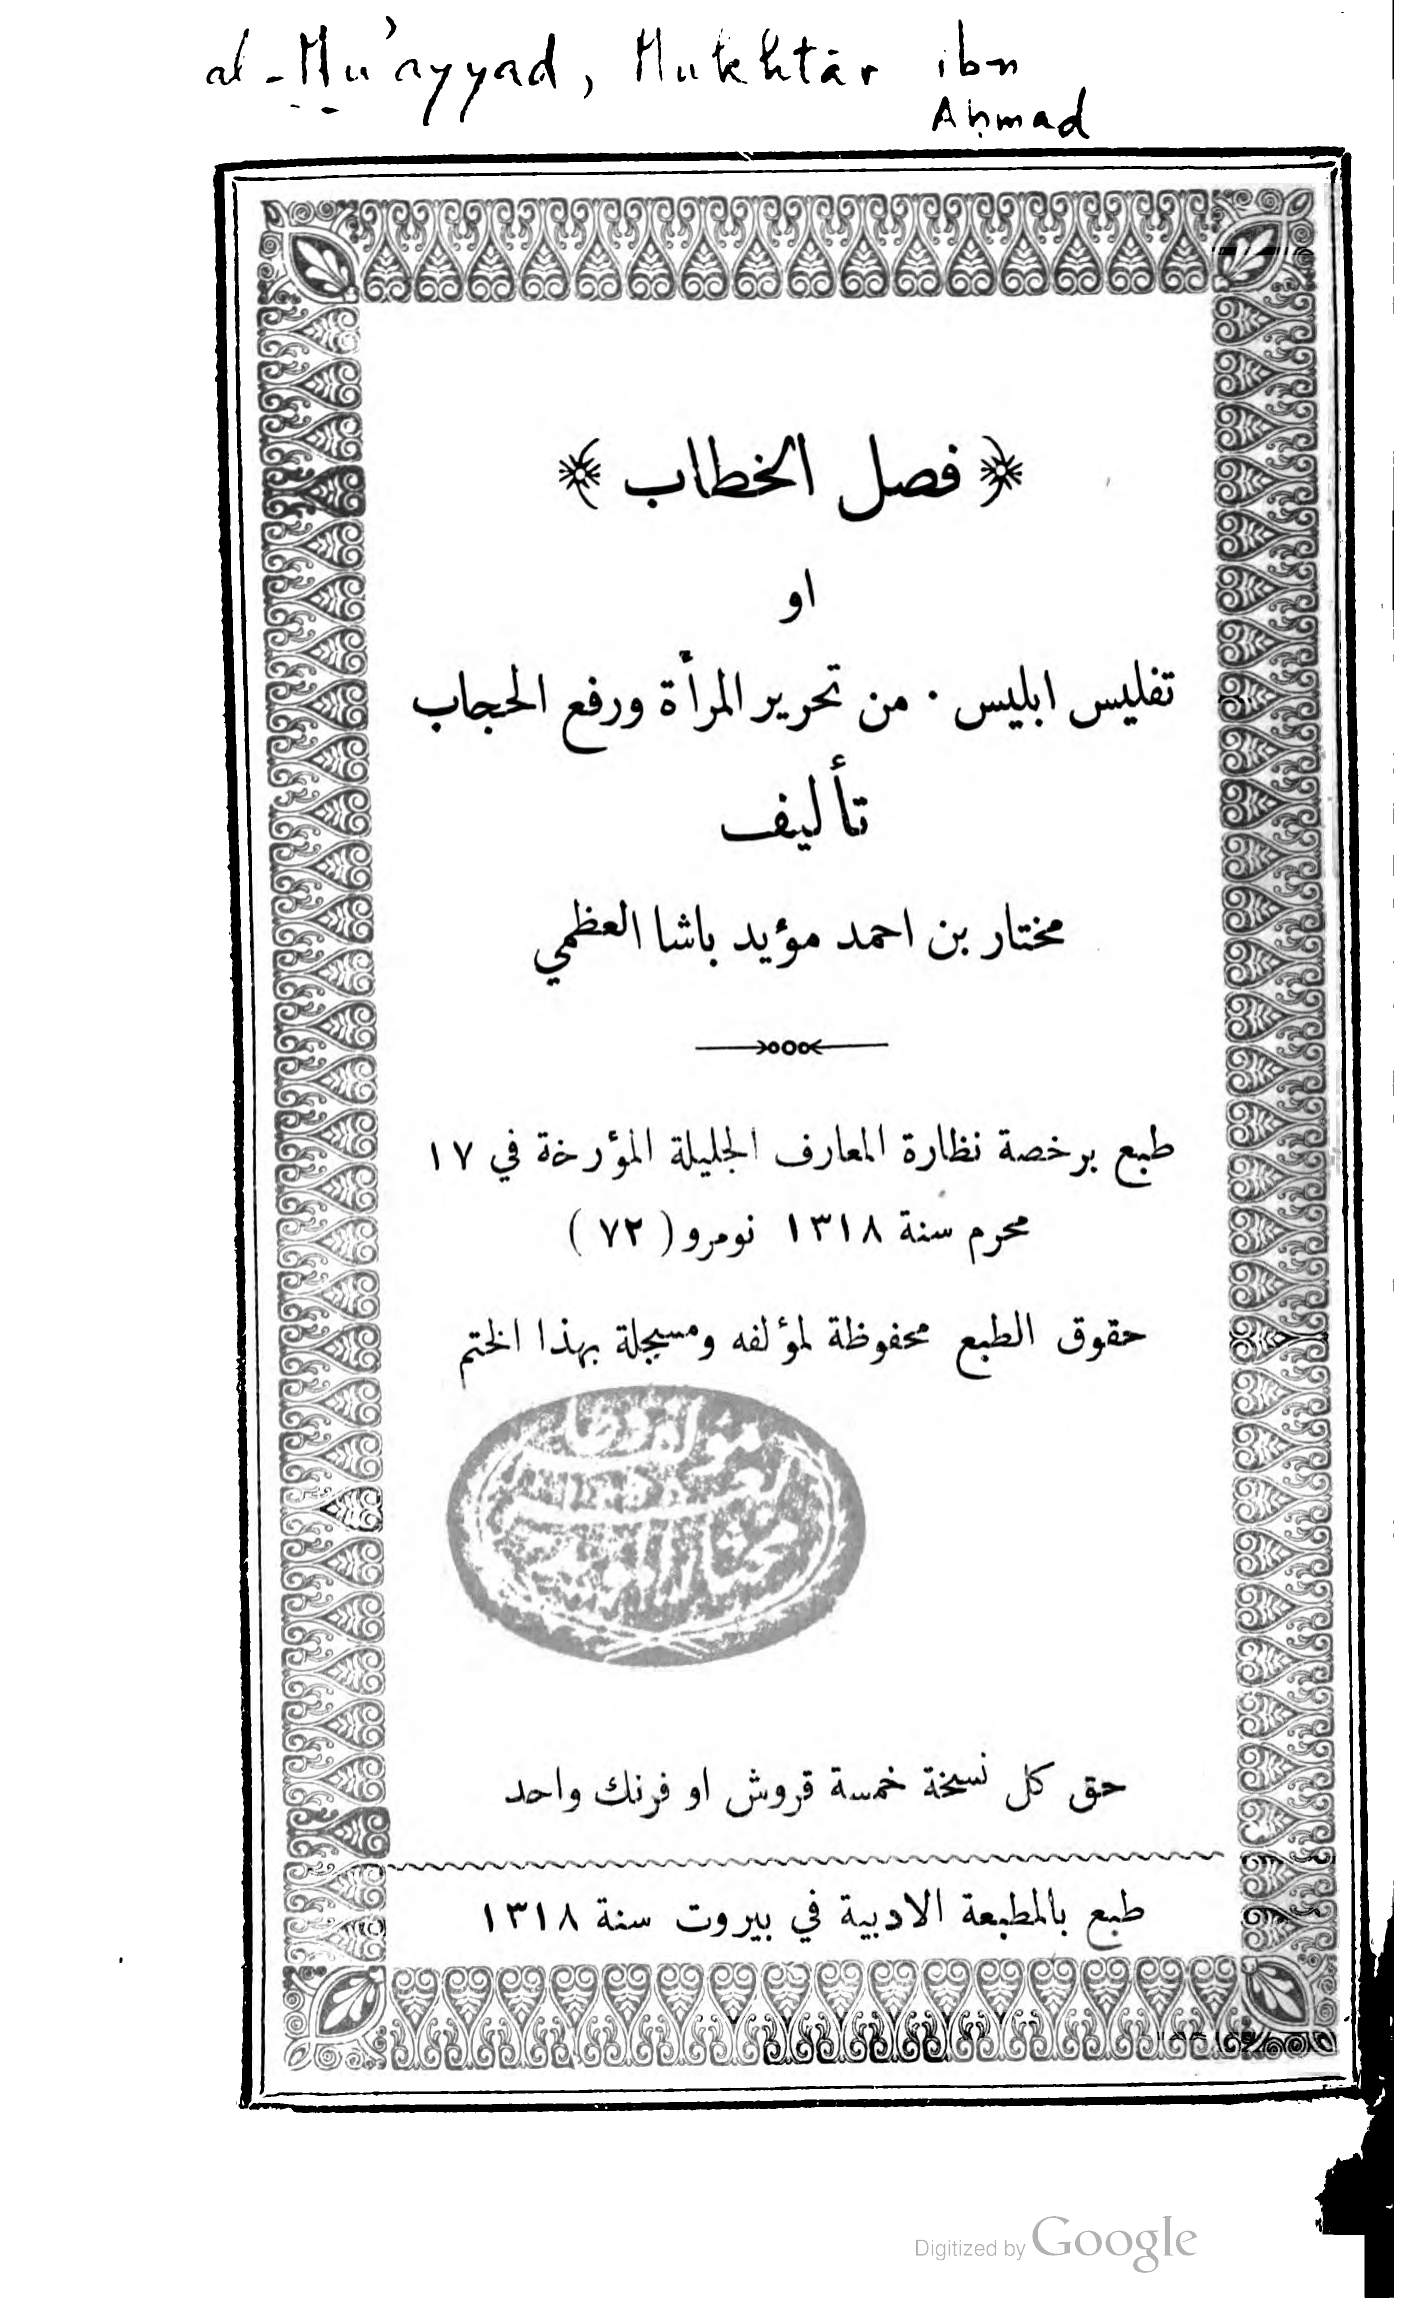 al-Mu'ayyad, Mukhtār ibn
Aḥmad
﴿ فصل الخطاب ﴾
او
تفليس ابليس · من تحرير المرأة ورفع الحجاب
تأليف
مختار بن احمد مؤيد باشا العظمي
طبع برخصة نظارة المعارف الجليلة المؤرخة في ١٧
محرم سنة ١٣١٨ نومرو ( ٧٢ )
حقوق الطبع محفوظة لمؤلفه ومسجلة بهذا الختم
مختار المؤيد
حق كل نسخة خمسة قروش او فرنك واحد
طبع بالمطبعة الادبية في بيروت سنة ١٣١٨
Digitized by Google